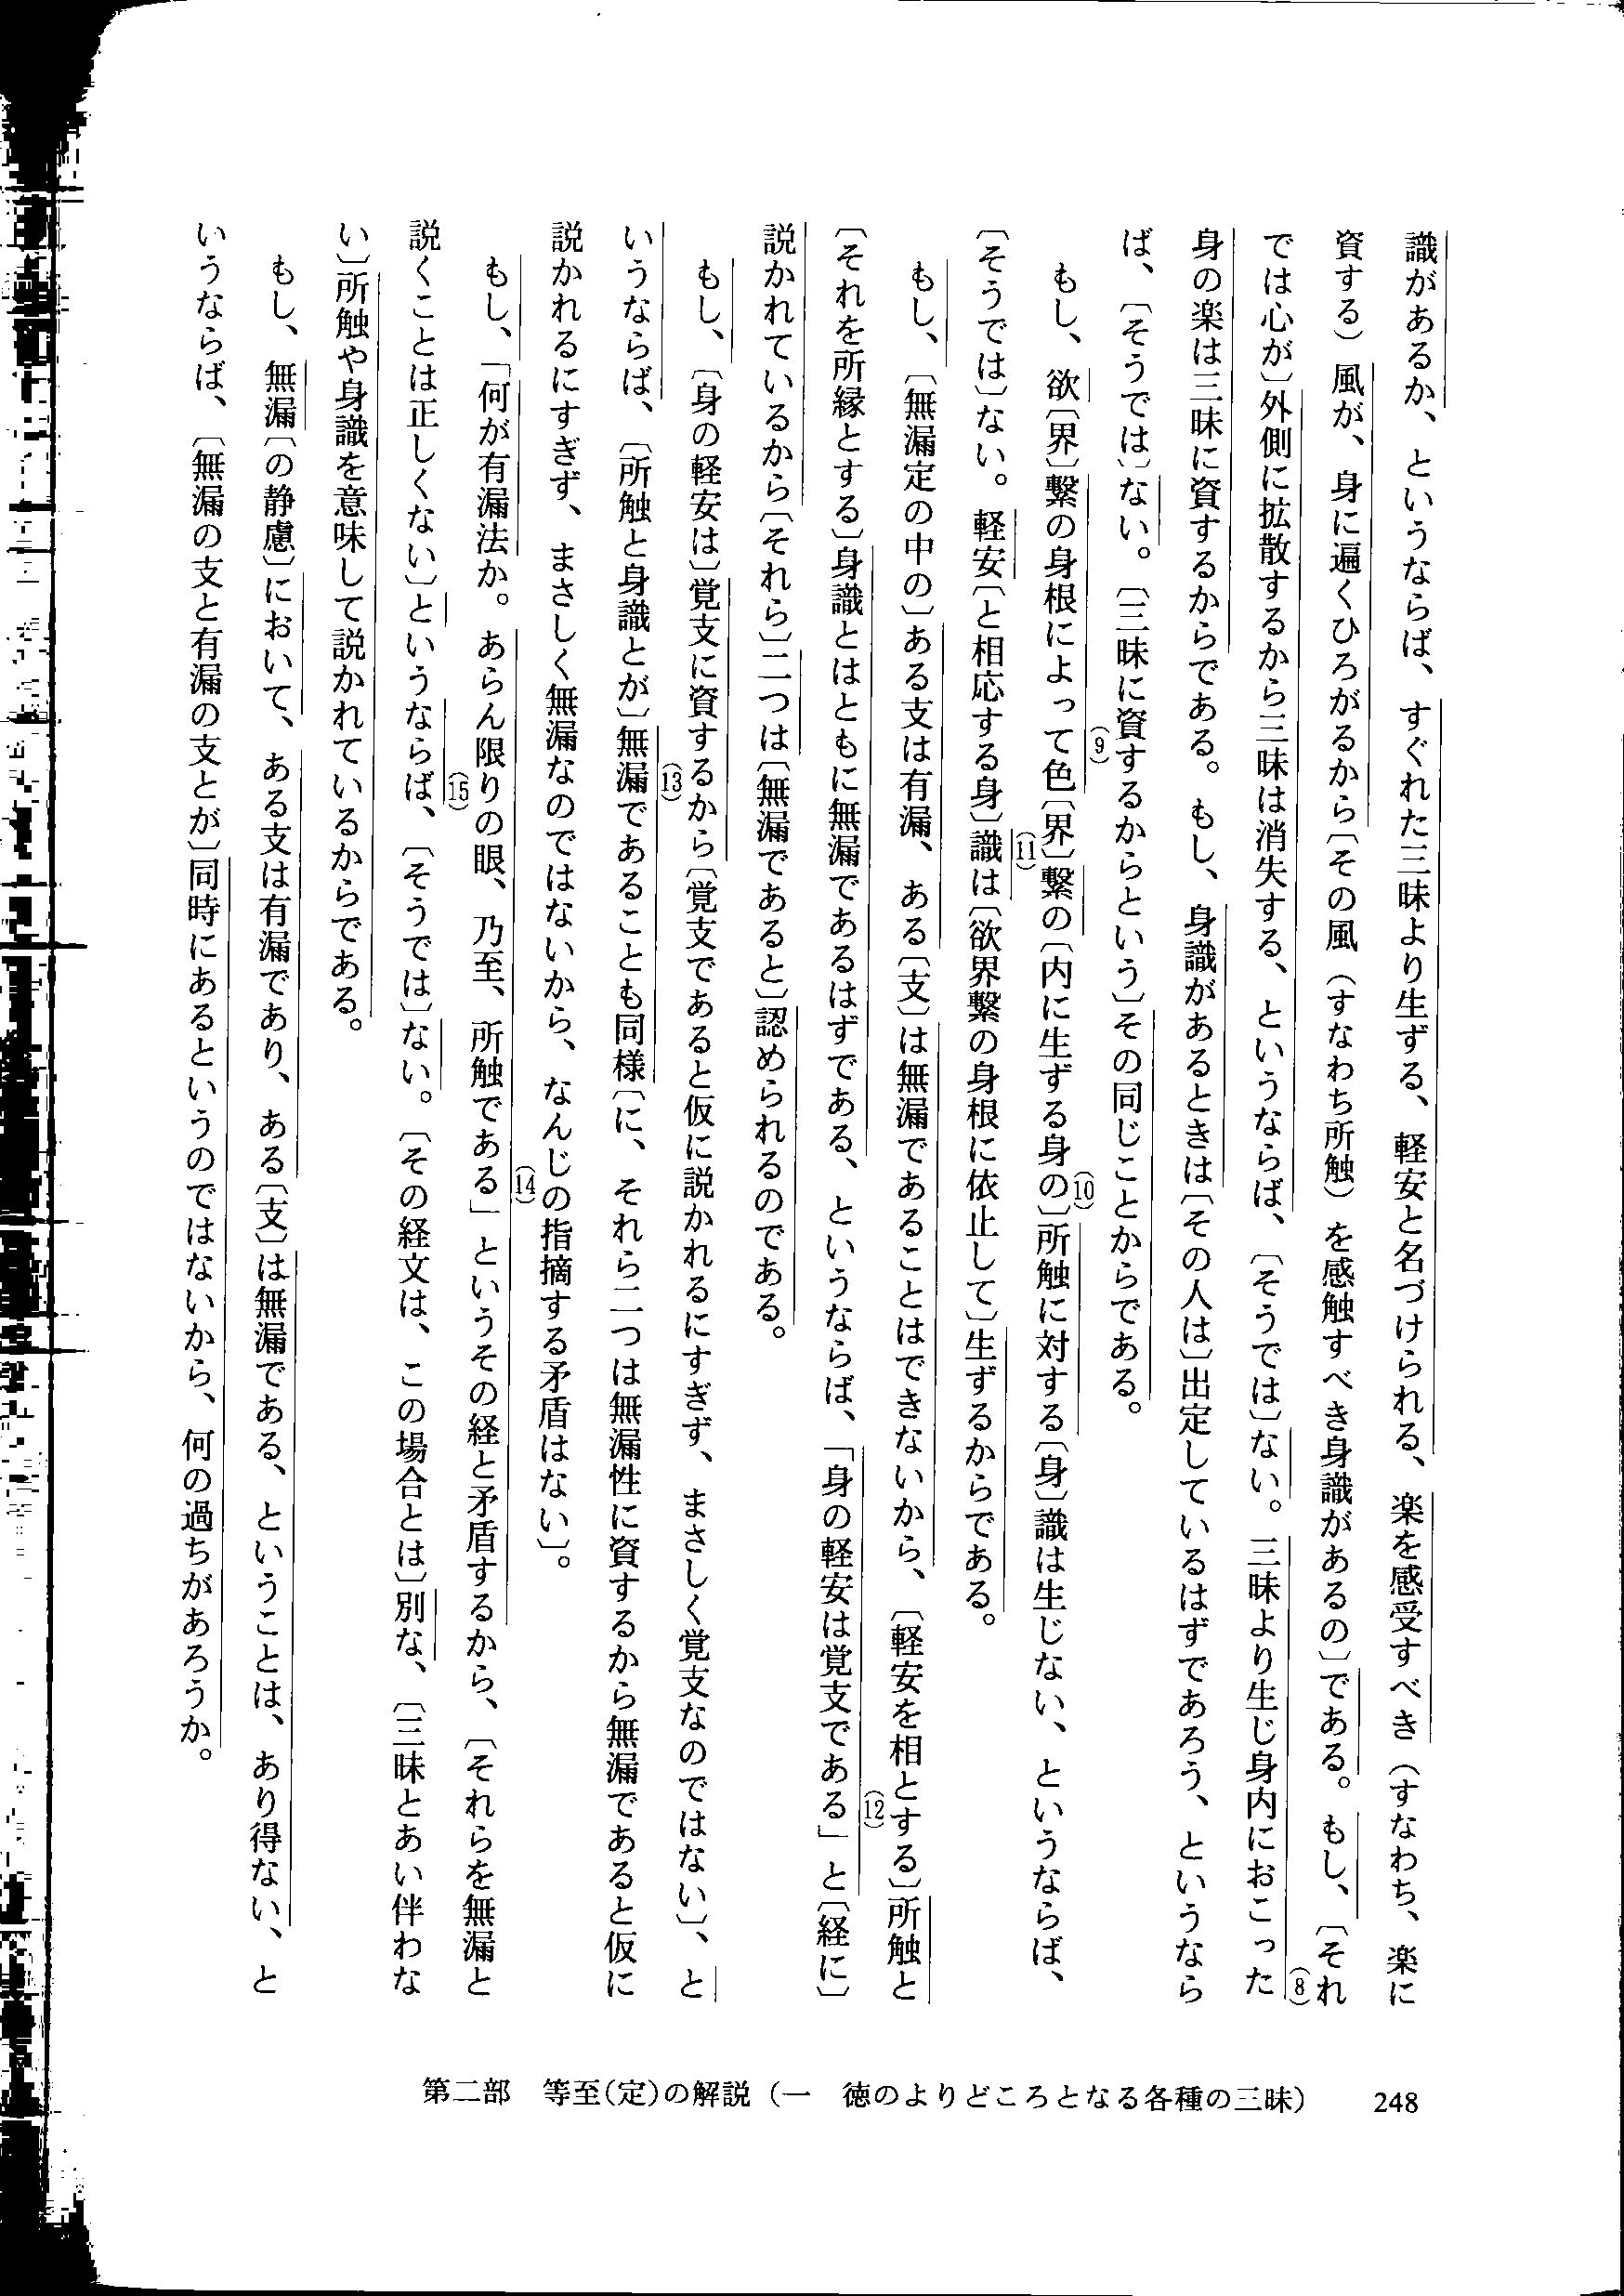 識があるか、というならば、すぐれた三昧より生ずる、軽安と名づけられる、楽を感受すべき（すなわち、楽に
資する）風が、身に遍くひろがるから〔その風（すなわち所触）を感触すべき身識があるの〕である。もし、〔それ
では心が〕外側に拡散するから三昧は消失する、というならば、〔そうでは〕ない。三昧より生じ身内におこった(8)
身の楽は三昧に資するからである。もし、身識があるときは〔その人は〕出定しているはずであろう、というなら
ば、〔そうでは〕ない。〔三昧に資するからという〕その同じことからである。
もし、欲〔界〕繋の身根によって(9)色〔界〕繋の〔内に生ずる身の〕(10)所触に対する〔身〕識は生じない、というならば、
〔そうでは〕ない。軽安〔と相応する身〕識は(11)〔欲界繋の身根に依止して〕生ずるからである。
もし、〔無漏定の中の〕ある支は有漏、ある〔支〕は無漏であることはできないから、〔軽安を相とする〕所触と
〔それを所縁とする〕身識とはともに無漏であるはずである、というならば、「身の軽安は覚支である」と(12)〔経に〕
説かれているから〔それら〕二つは〔無漏であると〕認められるのである。
もし、〔身の軽安は〕覚支に資するから〔覚支であると仮に説かれるにすぎず、まさしく覚支なのではない〕、と
いうならば、〔所触と身識とが〕無漏(13)であることも同様〔に、それら二つは無漏性に資するから無漏であると仮に
説かれるにすぎず、まさしく無漏なのではないから、なんじの指摘する矛盾はない〕。
もし、「何が有漏法か。あらん限りの眼、乃至、所触である」(14)というその経と矛盾するから、〔それらを無漏と
説くことは正しくない〕というならば、(15)〔そうでは〕ない。〔その経文は、この場合とは〕別な、〔三昧とあい伴わな
い〕所触や身識を意味して説かれているからである。
もし、無漏〔の静慮〕において、ある支は有漏であり、ある〔支〕は無漏である、ということは、あり得ない、と
いうならば、〔無漏の支と有漏の支とが〕同時にあるというのではないから、何の過ちがあろうか。
第二部　等至(定)の解説（一　徳のよりどころとなる各種の三昧）　248